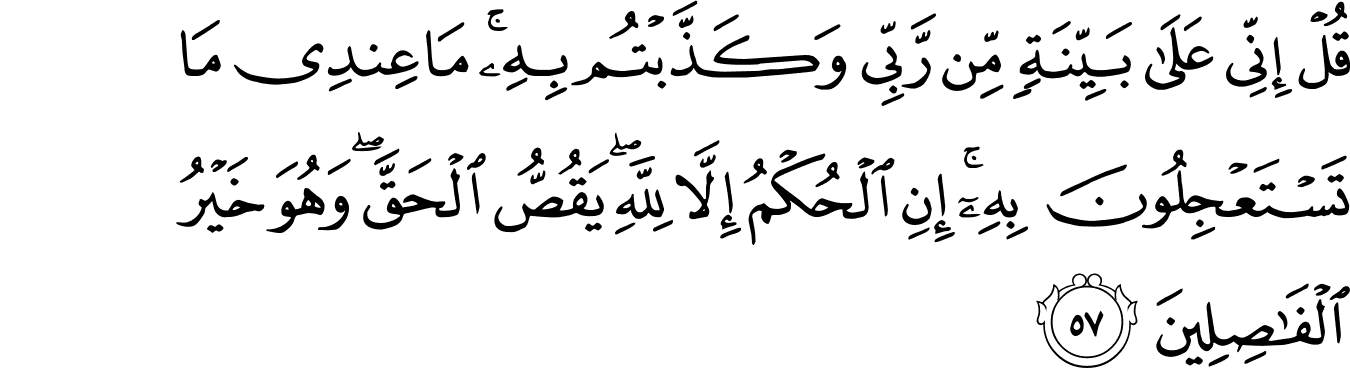 قُلْ إِنِّى عَلَىٰ بَيِّنَةٍ مِّن رَّبِّى وَكَذَّبْتُم بِهِۦ ۚ مَا عِندِى مَا
تَسْتَعْجِلُونَ بِهِۦٓ ۚ إِنِ ٱلْحُكْمُ إِلَّا لِلَّهِ ۖ يَقُصُّ ٱلْحَقَّ ۖ وَهُوَ خَيْرُ
ٱلْفَـٰصِلِينَ ٥٧